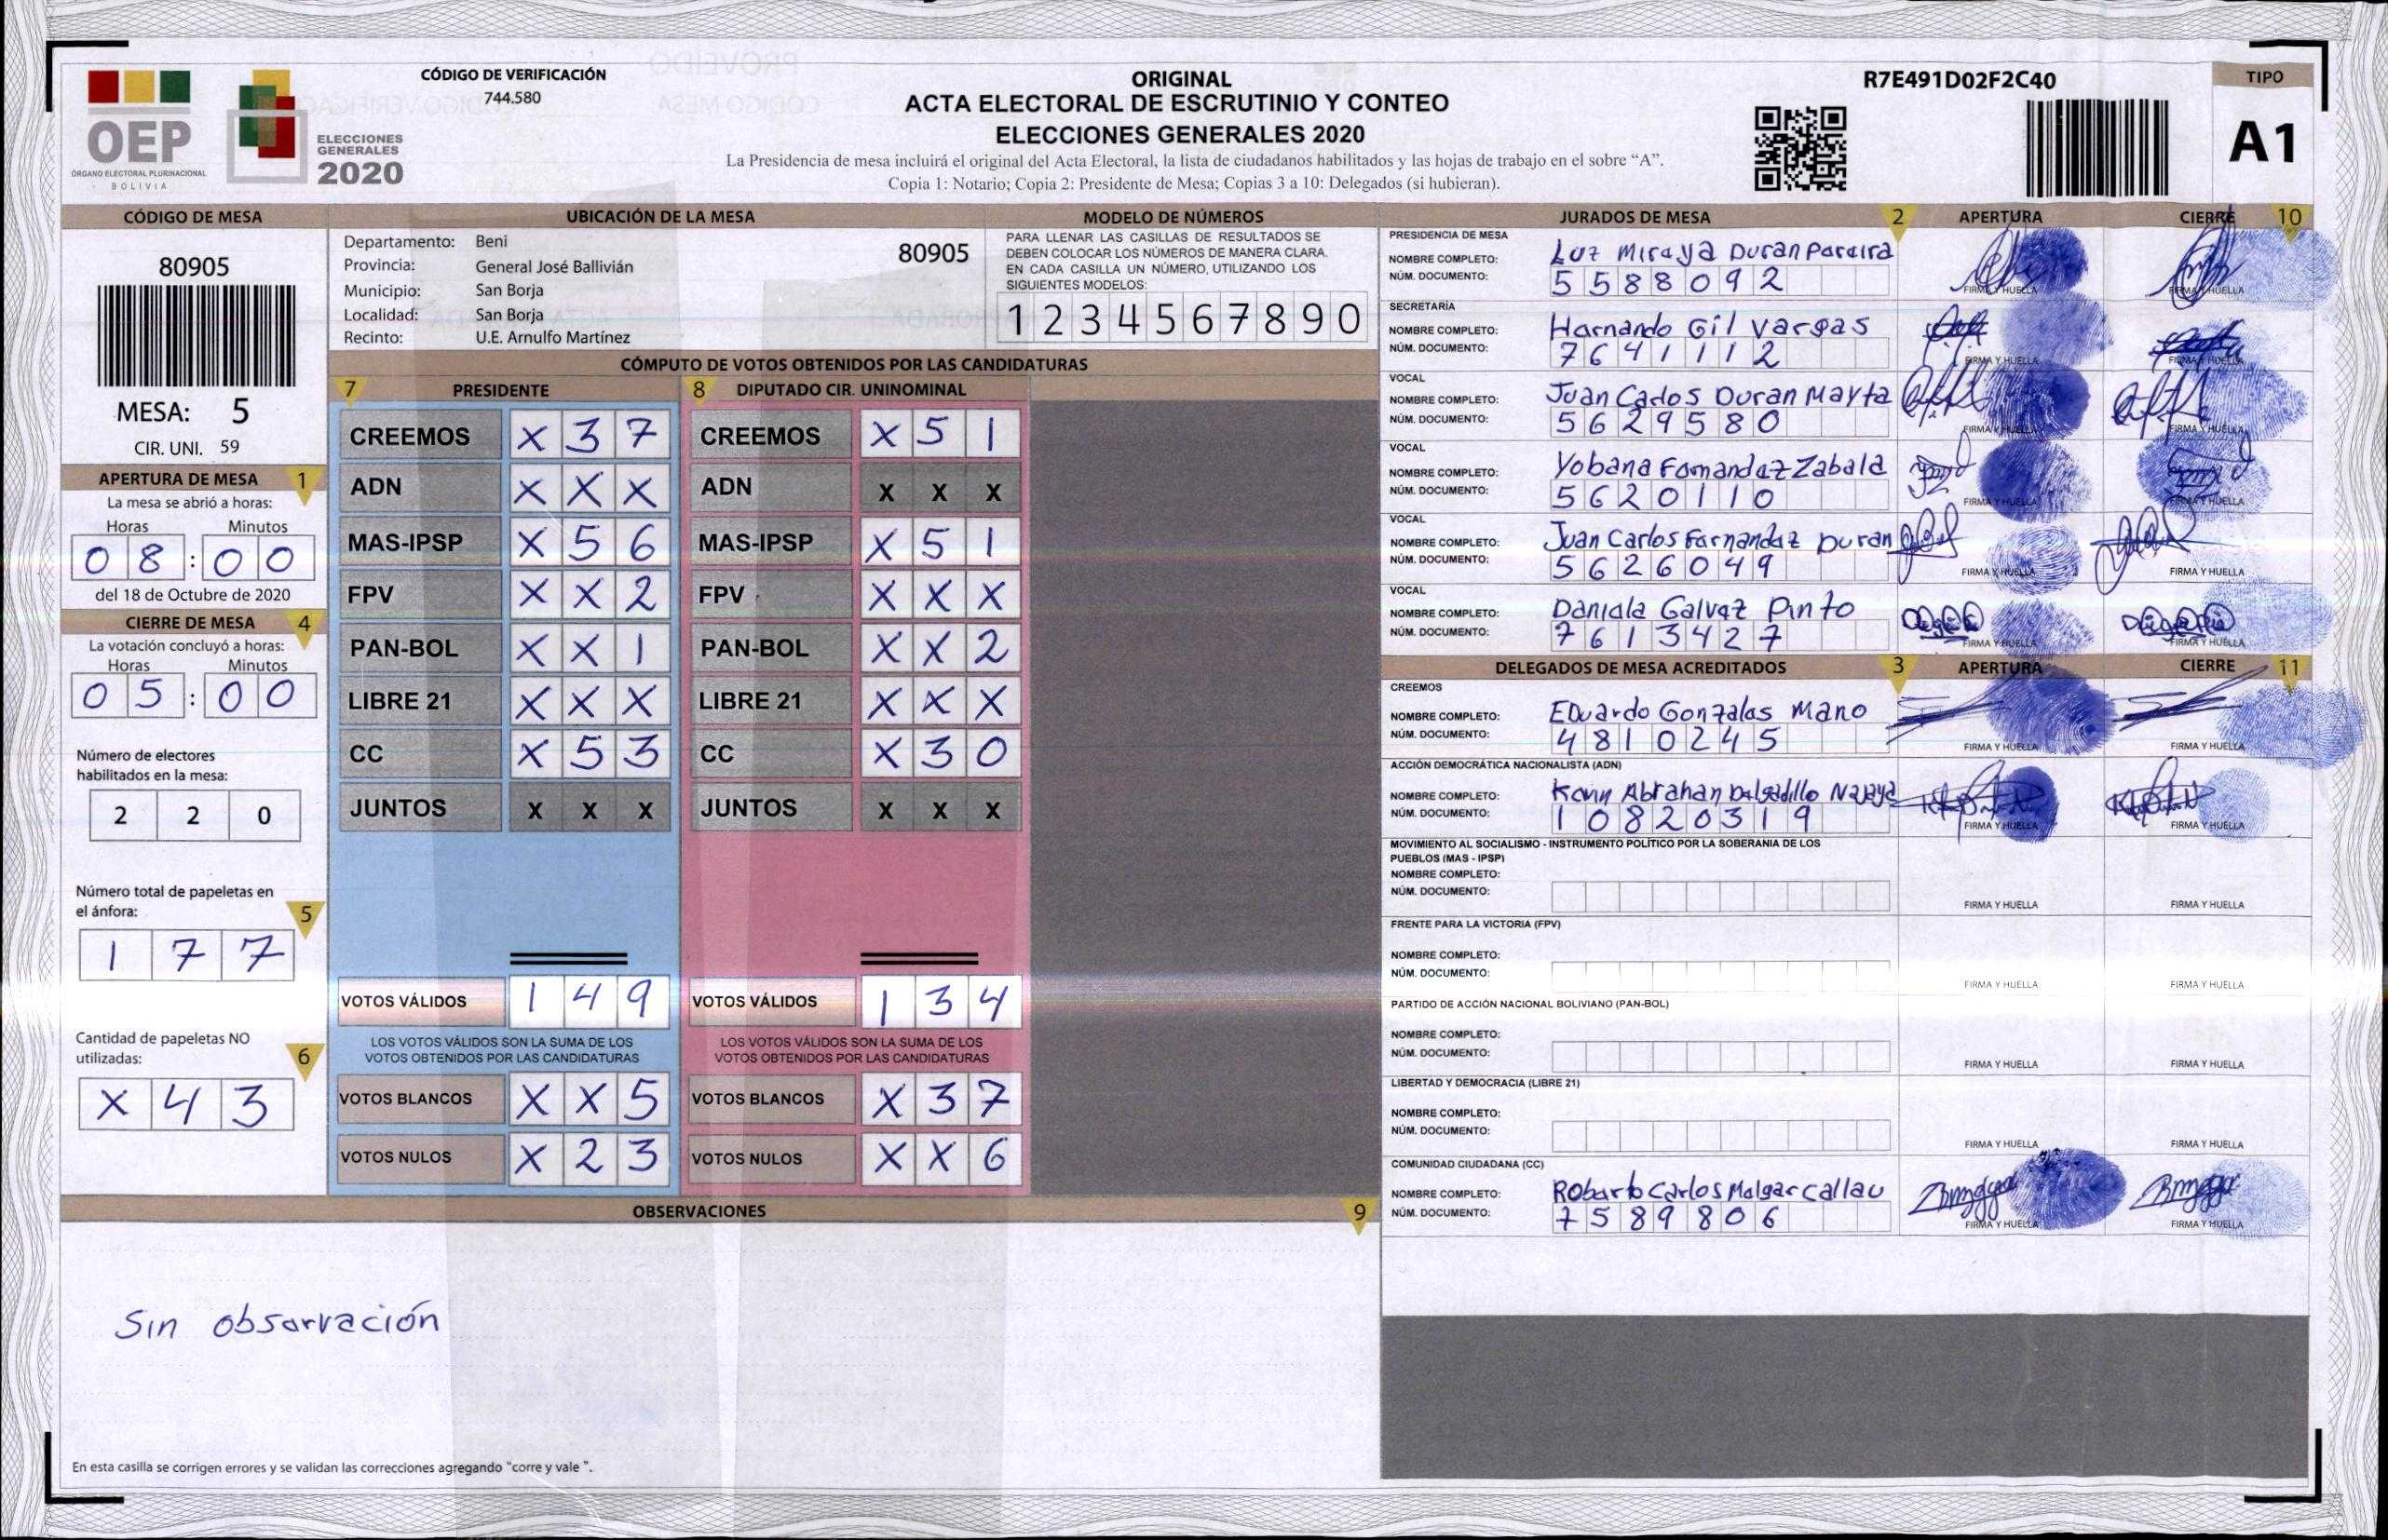 CÓDIGO DE VERIFICACIÓN
744.580
ORIGINAL
ACTA ELECTORAL DE ESCRUTINIO Y CONTEO
ELECCIONES GENERALES 2020
La Presidencia de mesa incluirá el original del Acta Electoral, la lista de ciudadanos habilitados y las hojas de trabajo en el sobre “A”.
Copia 1: Notario; Copia 2: Presidente de Mesa; Copias 3 a 10: Delegados (si hubieran).
R7E491D02F2C40
TIPO
A1
OEP
ÓRGANO ELECTORAL PLURINACIONAL
BOLIVIA
ELECCIONES
GENERALES
2020
CÓDIGO DE MESA
80905
MESA: 5
CIR. UNI. 59
APERTURA DE MESA 1
La mesa se abrió a horas:
Horas Minutos
0 8 : 0 0
del 18 de Octubre de 2020
CIERRE DE MESA 4
La votación concluyó a horas:
Horas Minutos
0 5 : 0 0
Número de electores
habilitados en la mesa:
2 2 0
Número total de papeletas en
el ánfora: 5
1 7 7
Cantidad de papeletas NO
utilizadas: 6
X 4 3
UBICACIÓN DE LA MESA
Departamento: Beni
80905
Provincia: General José Ballivián
Municipio: San Borja
Localidad: San Borja
Recinto: U.E. Arnulfo Martínez
MODELO DE NÚMEROS
PARA LLENAR LAS CASILLAS DE RESULTADOS SE
DEBEN COLOCAR LOS NÚMEROS DE MANERA CLARA.
EN CADA CASILLA UN NÚMERO, UTILIZANDO LOS
SIGUIENTES MODELOS:
1 2 3 4 5 6 7 8 9 0
CÓMPUTO DE VOTOS OBTENIDOS POR LAS CANDIDATURAS
7 PRESIDENTE 8 DIPUTADO CIR. UNINOMINAL
CREEMOS X 3 7 CREEMOS X 5 1
ADN X X X ADN X X X
MAS-IPSP X 5 6 MAS-IPSP X 5 1
FPV X X 2 FPV X X X
PAN-BOL X X 1 PAN-BOL X X 2
LIBRE 21 X X X LIBRE 21 X X X
CC X 5 3 CC X 3 0
JUNTOS X X X JUNTOS X X X
VOTOS VÁLIDOS 1 4 9 VOTOS VÁLIDOS 1 3 4
LOS VOTOS VÁLIDOS SON LA SUMA DE LOS LOS VOTOS VÁLIDOS SON LA SUMA DE LOS
VOTOS OBTENIDOS POR LAS CANDIDATURAS VOTOS OBTENIDOS POR LAS CANDIDATURAS
VOTOS BLANCOS X X 5 VOTOS BLANCOS X 3 7
VOTOS NULOS X 2 3 VOTOS NULOS X X 6
OBSERVACIONES 9
Sin observación
En esta casilla se corrigen errores y se validan las correcciones agregando "corre y vale ".
JURADOS DE MESA 2 APERTURA CIERRE 10
PRESIDENCIA DE MESA
NOMBRE COMPLETO: Luz Miraya Duran Pareira
NÚM. DOCUMENTO: 5 5 8 8 0 9 2
FIRMA Y HUELLA FIRMA Y HUELLA
SECRETARÍA
NOMBRE COMPLETO: Hernando Gil Vargas
NÚM. DOCUMENTO: 7 6 4 1 1 1 2
FIRMA Y HUELLA FIRMA Y HUELLA
VOCAL
NOMBRE COMPLETO: Juan Carlos Duran Mayta
NÚM. DOCUMENTO: 5 6 2 9 5 8 0
FIRMA Y HUELLA FIRMA Y HUELLA
VOCAL
NOMBRE COMPLETO: Yobana Fernandez Zabala
NÚM. DOCUMENTO: 5 6 2 0 1 1 0
FIRMA Y HUELLA FIRMA Y HUELLA
VOCAL
NOMBRE COMPLETO: Juan Carlos Fernandez Duran
NÚM. DOCUMENTO: 5 6 2 6 0 4 9
FIRMA Y HUELLA FIRMA Y HUELLA
VOCAL
NOMBRE COMPLETO: Daniela Galvez Pinto
NÚM. DOCUMENTO: 7 6 1 3 4 2 7
FIRMA Y HUELLA FIRMA Y HUELLA
DELEGADOS DE MESA ACREDITADOS 3 APERTURA CIERRE 11
CREEMOS
NOMBRE COMPLETO: Eduardo Gonzales Mano
NÚM. DOCUMENTO: 4 8 1 0 2 4 5
FIRMA Y HUELLA FIRMA Y HUELLA
ACCIÓN DEMOCRÁTICA NACIONALISTA (ADN)
NOMBRE COMPLETO: Abrahan Delgadillo
NÚM. DOCUMENTO: 1 0 8 2 0 3 1 9
FIRMA Y HUELLA FIRMA Y HUELLA
MOVIMIENTO AL SOCIALISMO - INSTRUMENTO POLÍTICO POR LA SOBERANIA DE LOS
PUEBLOS (MAS - IPSP)
NOMBRE COMPLETO:
NÚM. DOCUMENTO:
FIRMA Y HUELLA FIRMA Y HUELLA
FRENTE PARA LA VICTORIA (FPV)
NOMBRE COMPLETO:
NÚM. DOCUMENTO:
FIRMA Y HUELLA FIRMA Y HUELLA
PARTIDO DE ACCIÓN NACIONAL BOLIVIANO (PAN-BOL)
NOMBRE COMPLETO:
NÚM. DOCUMENTO:
FIRMA Y HUELLA FIRMA Y HUELLA
LIBERTAD Y DEMOCRACIA (LIBRE 21)
NOMBRE COMPLETO:
NÚM. DOCUMENTO:
FIRMA Y HUELLA FIRMA Y HUELLA
COMUNIDAD CIUDADANA (CC)
NOMBRE COMPLETO: Roberto Carlos Melgar Callau
NÚM. DOCUMENTO: 7 5 8 9 8 0 6
FIRMA Y HUELLA FIRMA Y HUELLA